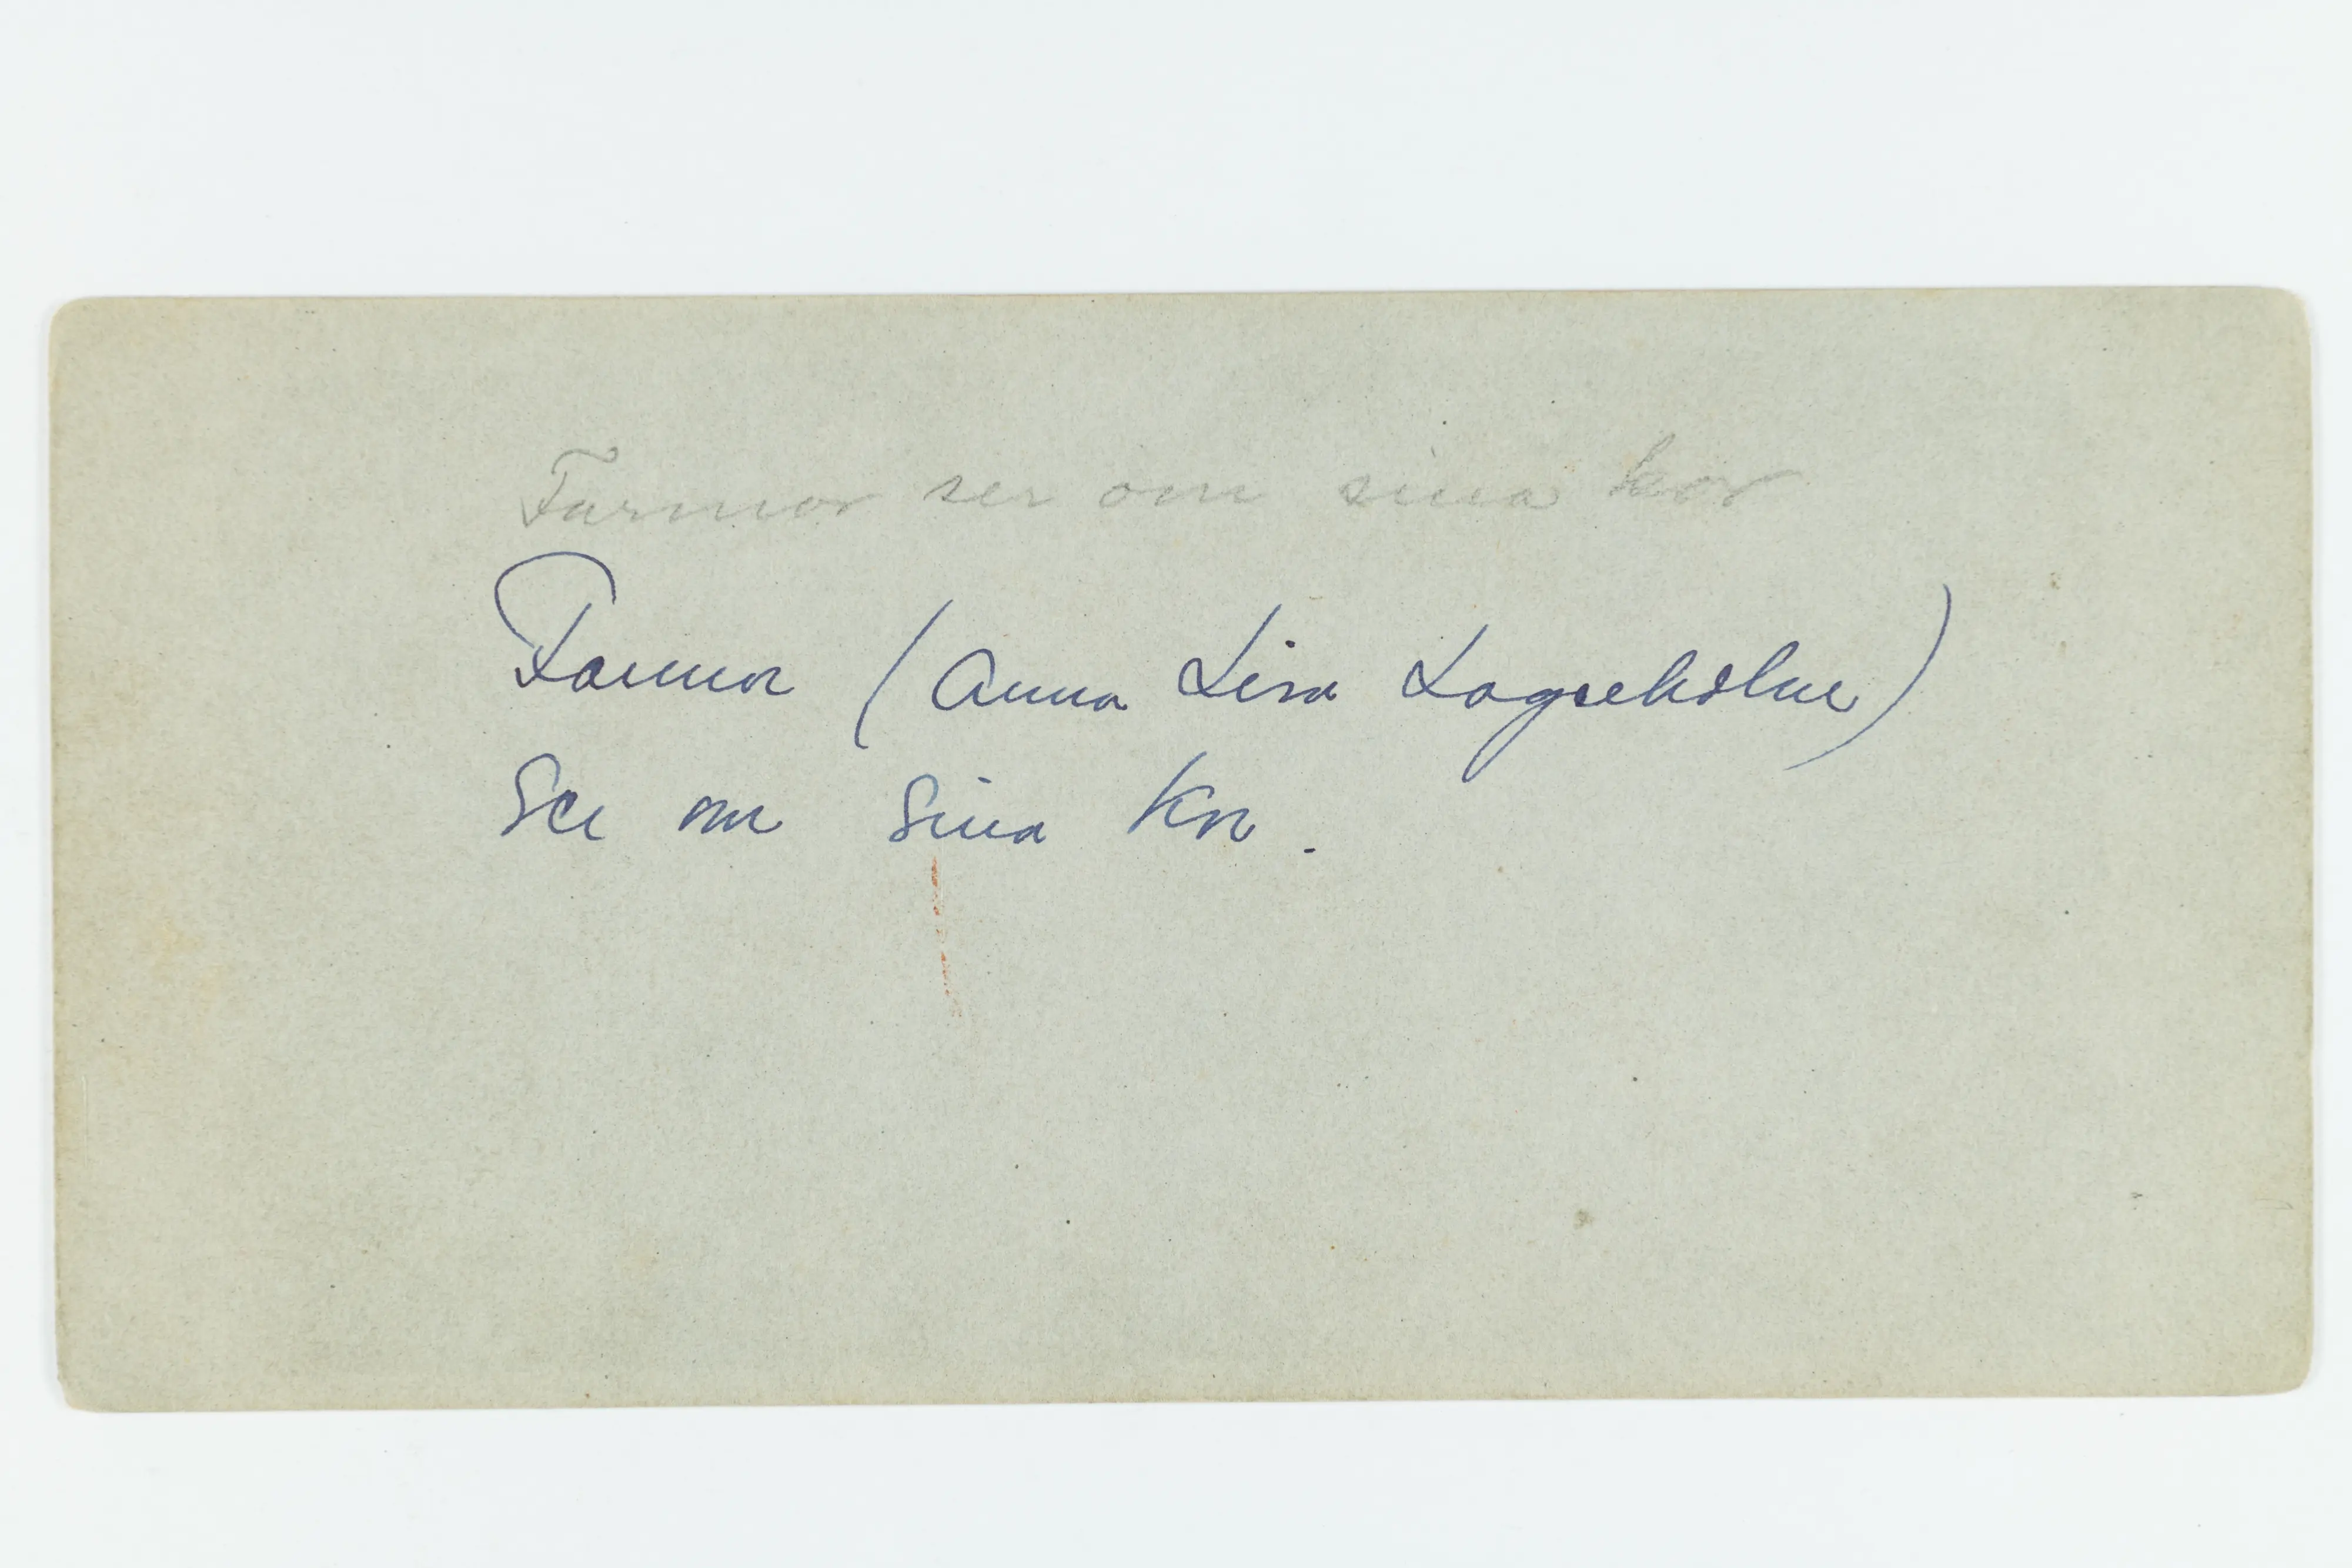 Farmor ser om sina kor
Farmor (Anna Lisa Lagreholm)
Ser om sina kor.